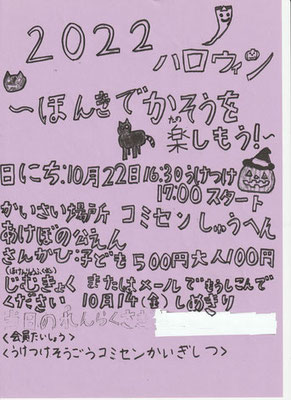 2022
ハロウィン
~ほんきでかそうを
楽しもう!~
たの
日にち:10月22日16:30うけつけ
17:00スタート
かいさい場所 コミセンしゅうへん
あけぼの公えん
さんかひ子ども500円大人100円
じむきょく またはメールでもうしこんで
ください 10月14(金)しめきり
当日のれんらくさき
<会員たいしょう>
<うけつけそうごうコミセンかいぎしつ>